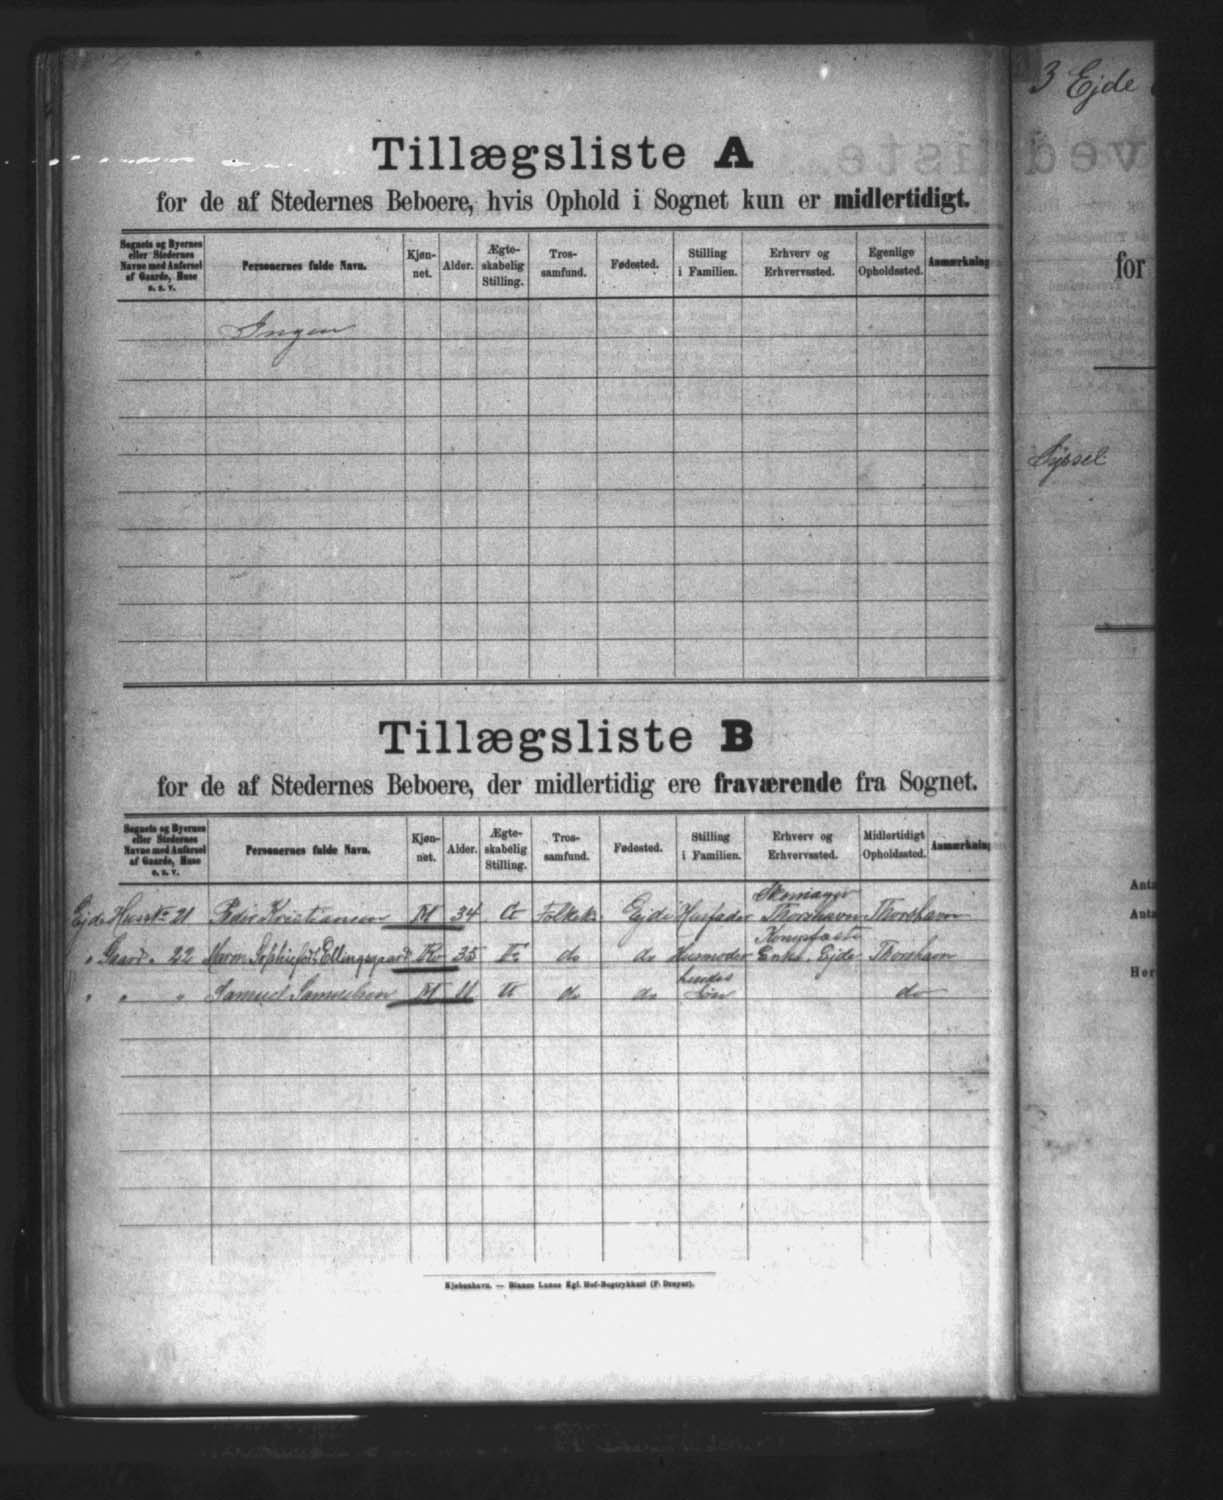 Tillægsliste A
for de af Stedernes Beboere, hvis Ophold i Sognet kun er midlertidigt.
Sognets og Byernes eller Stedernes Navne med Anførsel af Gaarde, Huse o. s. v. Personernes fulde Navn. Kjøn-net. Alder. Ægte-skabelig Stilling. Tros-samfund. Fødested. Stilling i Familien. Erhverv og Erhvervssted. Egenlige Opholdssted. Anmærkning
Ingen
Tillægsliste B
for de af Stedernes Beboere, der midlertidig ere fraværende fra Sognet.
Sognets og Byernes eller Stedernes Navne med Anførsel af Gaarde, Huse o. s. v. Personernes fulde Navn. Kjøn-net. Alder. Ægte-skabelig Stilling. Tros-samfund. Fødested. Stilling i Familien. Erhverv og Erhvervssted. Midlertidigt Opholdssted. Anmærkning
Skomager
Ejde 21 Kristiansen M 34 Folkek. Ejde Husfader Thorshavn Thorshavn
" Gaard " 22 Ellingsgaard 35 E do do Husmoder Enke. Ejde Thorshavn
" " " Samuel Samuelsen M 11 U do do Søn do
Kjøbenhavn. — Bianco Lunos Kgl. Hof-Bogtrykkeri (F. Dreyer).
3 Ejde
for
Syssel
Anta
Anta
Her